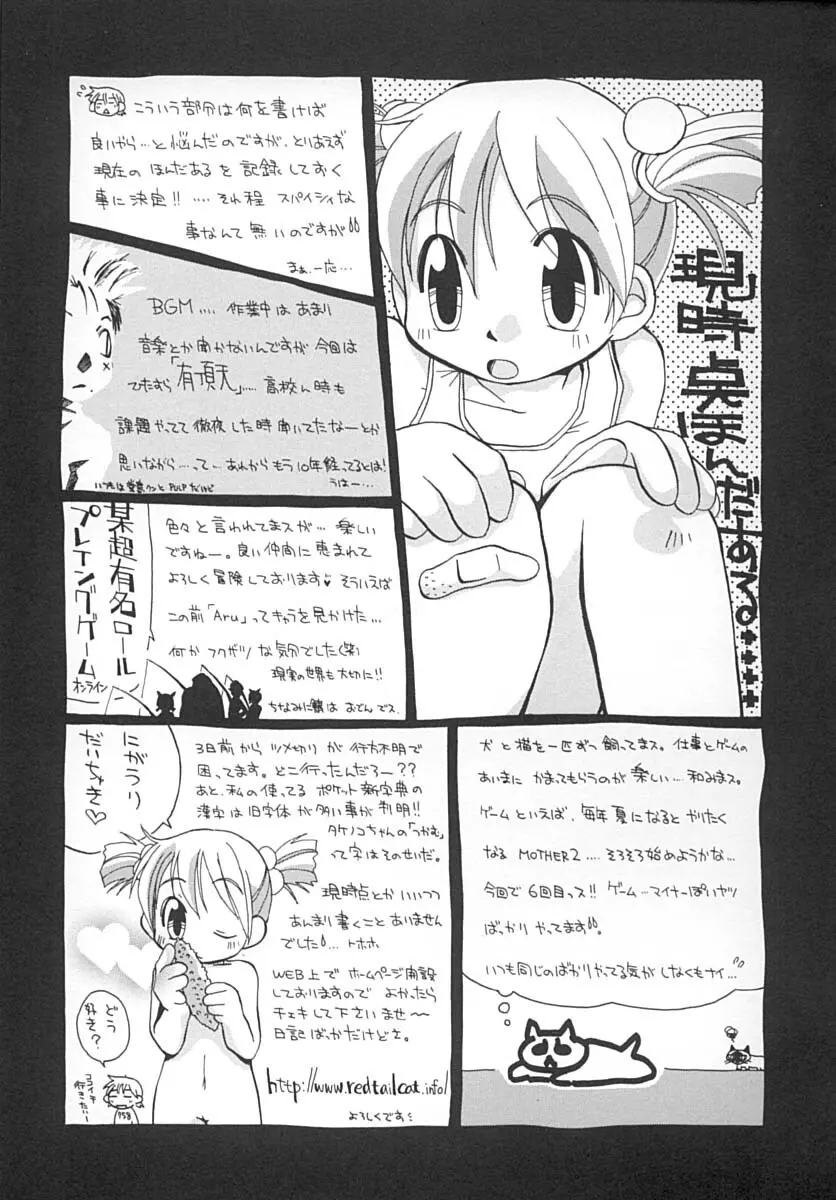 現時点ほんだある・・・・
こういう部分は何を書けば
良いやら…と悩んだのですが、とりあえず
現在の ほんだある を 記録しておく
事に決定!! ‥‥それ程 スパイシィな
事なんて 無いのですが
まぁ、一応…
BGM‥‥ 作業中は あまり
音楽とか聞かないんですが 今回は
ひたすら「有頂天」‥‥ 高校ん時も
課題やってて 徹夜した時 聞いてたなーとか
思いながら‥‥って… あれからもう10年経ってるとは!
うはー…
某超有名ロール
プレイングゲーム
オンライン
色々と言われてまスが… 楽しい
ですねー。良い仲間に恵まれて
よろしく冒険しております♥ そういえば
この前「Aru」ってキャラを見かけた…
何か フクザツ な気分でした(笑)
現実の世界も大切に!!
ちなみに鯖は おでん でス.
犬と猫を一匹ずつ飼ってまス。仕事とゲームの
あいまに かまってもらうのが 楽しい‥‥和みまス。
ゲームといえば、毎年夏になると やりたく
なる MOTHER2 ‥‥そろそろ始めようかな…
今回で6回目っス!! ゲーム…マイナーぽいヤツ
ばっかり やってます
いつも同じのばかりやってる気がしなくもナイ…
にがうり
だいちゅき♡
3日前から ツメ切り が 行方不明で
困ってます。どこ行ったんだろー??
あと、私の使ってる ポケット新字典の
漢字は 旧字体 が 多い事が 判明!!
タケノコちゃんの「つかむ」
って字はそのせいだ。
現時点とか いいつつ
あんまり書くこと ありません
でした!… トホホ
WEB上で ホームページ開設
しておりますので よかったら
チェキして下さいませ〜
日記ばっかだけどさ。
http://www.redtailcat.info/
よろしくです
どう
好き?
ココイチ
行きたいー